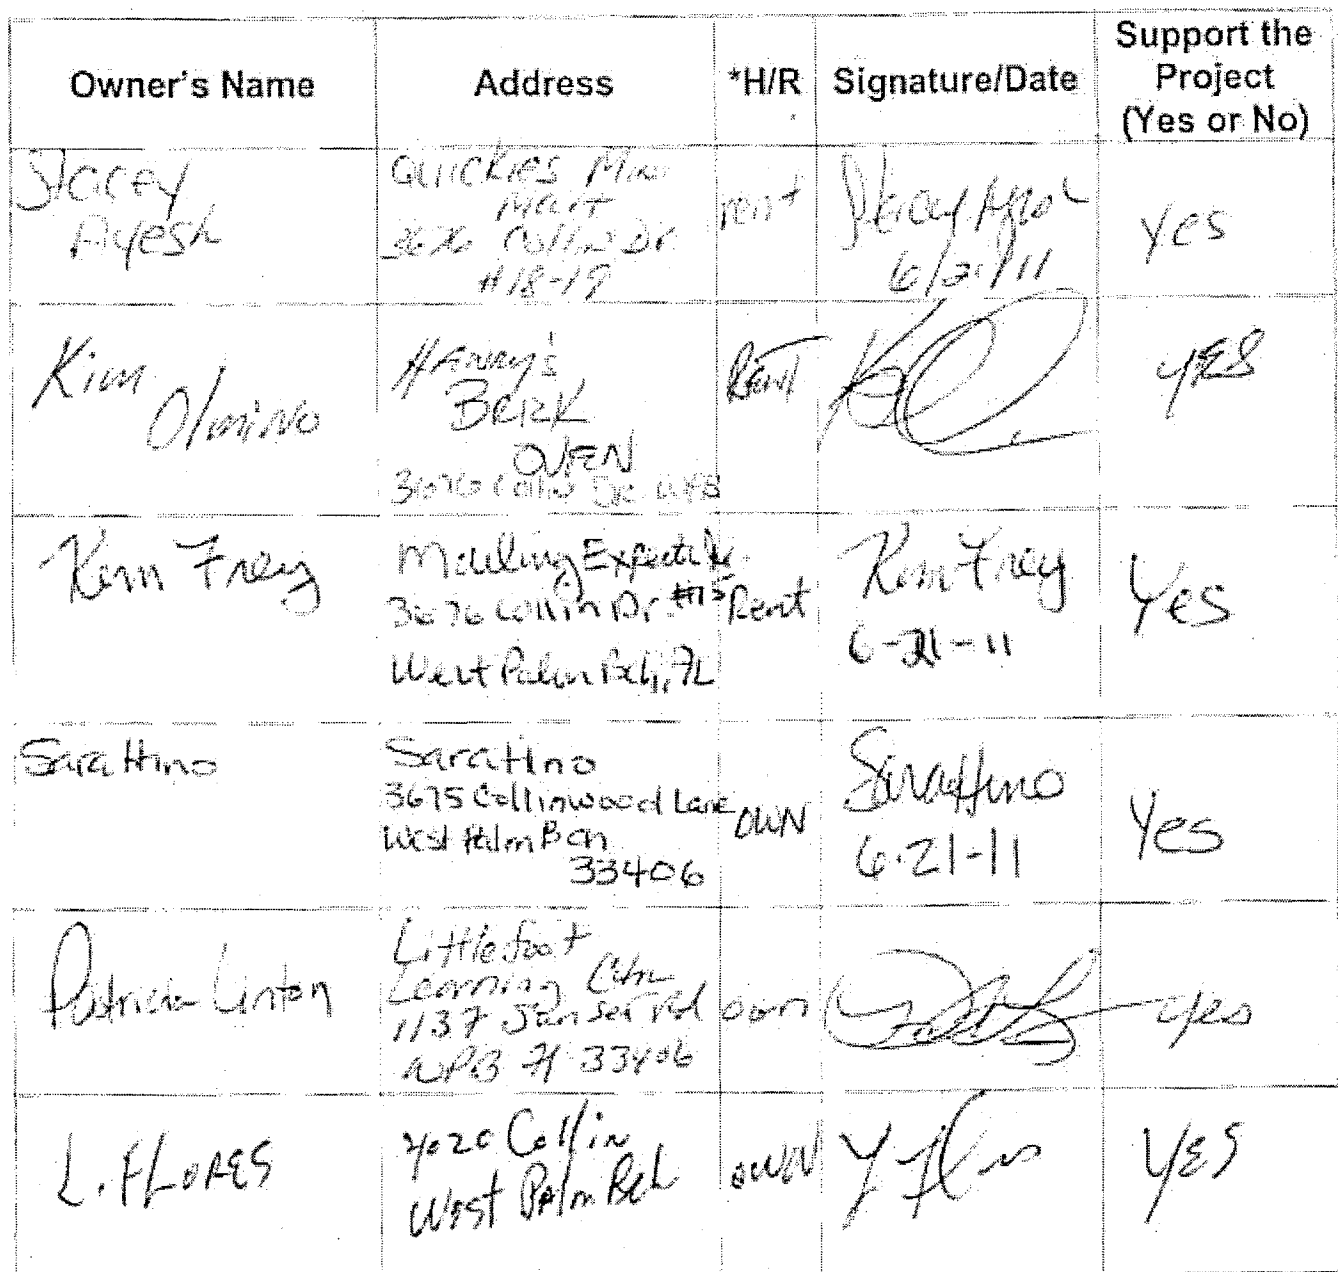 Owner's Name Address *H/R Signature/Date Support the Project (Yes or No)
Stacey
Ayesh
Quickies Mini
Mart
3676 Collin Dr.
#18-19
rent
6/21/11
yes
Kim
Olmino
Henry's
Brick
OVEN
3676 Collin Dr. WPB
Rent
YES
Kim Frey
Mailing Expectd
3676 Collin Dr. #15
West Palm Bch, FL
Rent
Kim Frey
6-21-11
Yes
Sara Hino
Sara Hino
3675 Collinwood Lane
West Palm Bch
33406
OWN
Sara Hino
6-21-11
Yes
Patricia Linton
Littlefoot
Learning Cntr
1137 Jansen Rd
WPB Fl 33406
own
yes
L. FLORES
4020 Collin
West Palm Bch
OWN
YES